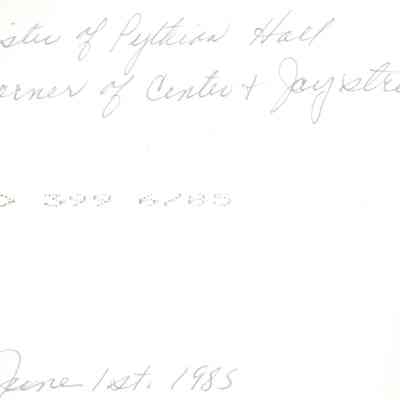 ster of Pythian Hall
orner of Center + Jay stre
399 6/85
June 1st. 1985